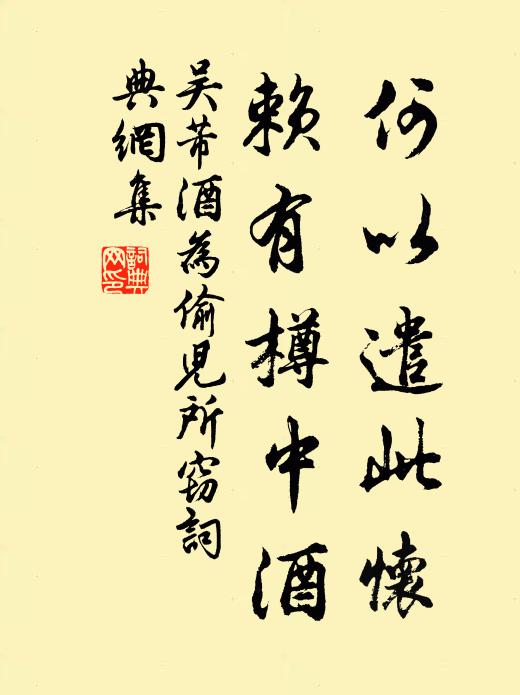 何以遣此懷
賴有樽中酒
吳芾酒為偷兒所竊詞
典網集
詞典
网印